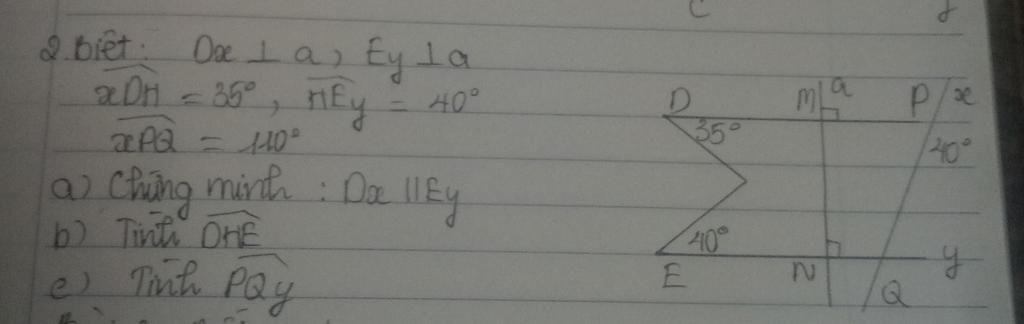 c
2. biết: Dx ⊥ a, Ey ⊥ a
xDH = 35°, HEy = 40°
xPQ = 140°
a) Chứng minh : Dx // Ey
b) Tính DHE
c) Tính PQy
D M a P x
35° 40°
40°
E N Q y